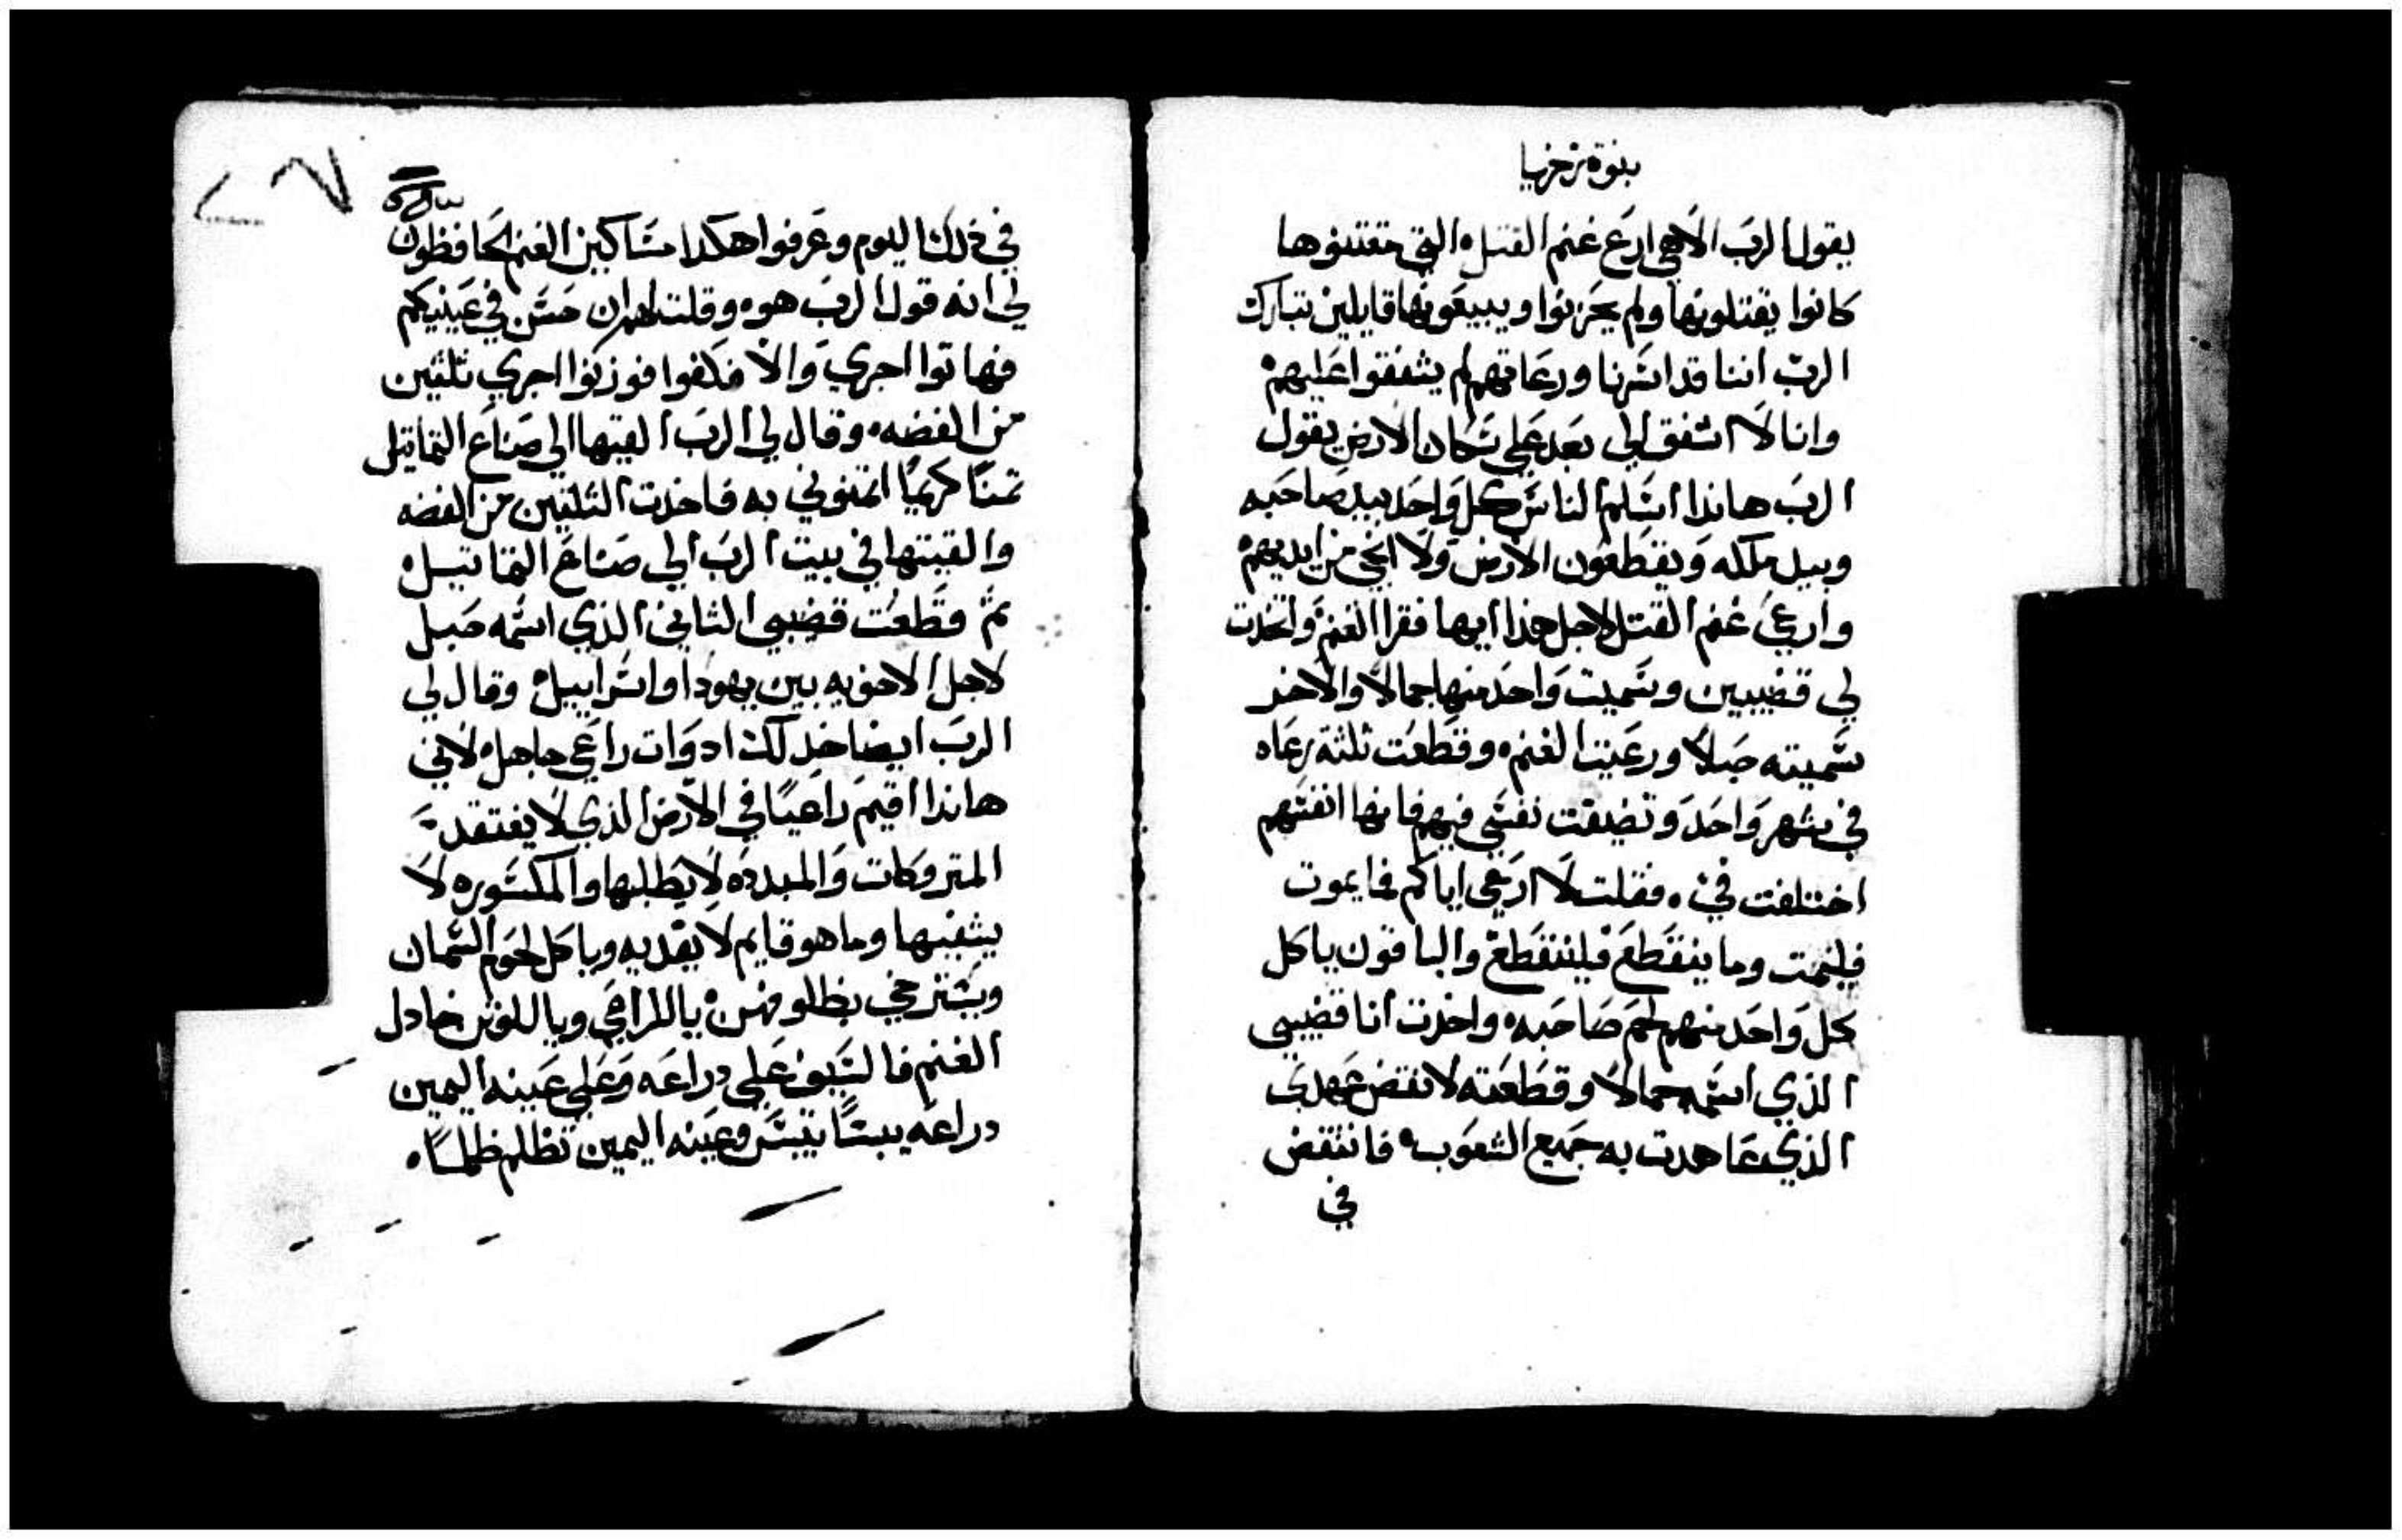 بنوة زخريا
يقول الرب الاهي ارع غنم القتل التي مقتنوها
كانوا يقتلونها ولم يحزنوا ويبيعونها قايلين تبارك
الرب اننا قد اسرنا ورعاتهم لم يشفقوا عليهم
وانا لا اشفق بعد علي سكان الارض يقول
الرب هاندا اسلم الناس كل واحد بيد صاحبه
وبيد ملكه ويقطعون الارض ولا انجي من ايديهم
وارعي غنم القتل لاجل هذا ايها فقرا الغنم واتخدت
لي قضيبين وسميت واحد منها جمالا والاخر
سميته حبلا ورعيت الغنم وقطعت ثلثة رعاه
في شهر واحد وتضيقت نفسي فيهم فانها انفسهم
اختلفت في فقلت لا ارعي اياكم فما يموت
فليمت وما ينقطع فلينقطع والباقون ياكل
كل واحد منهم لحم صاحبه واخدت انا قضيبي
الذي اسمه جمالا وقطعته لانقض عهدي
الذي عاهدت به جميع الشعوب فانتقض
في
٢٧
في ذلك اليوم وعرفوا هكدا مساكين الغنم الحافظون
لي انه قول الرب هو وقلت لهم ان حسن في عينيكم
فهاتوا اجري والا فكفوا فوزنوا اجري تلتين
من الفضه وقال لي الرب القيها الي صناع التماتيل
تمنا كريما اتمنوني به فاخدت التلتين من الفضه
والقيتها في بيت الرب الي صناع التماتيل
ثم قطعت قضيبي الثاني الذي اسمه حبل
لاجل الاخويه بين يهودا واسراييل وقال لي
الرب ايضا خد لك ادوات راعي جاهل لاني
هاندا اقيم راعيا في الارض الذي لا يفتقد
المتروكات والمبدده لا يطلبها والمكسوره لا
يشفيها وما هو قايم لا يقديه وياكل لحوم السمان
ويسترخي بظلوفهن ياللراعي وياللوثن خادل
الغنم فالسيف علي دراعه وعلي عينه اليمين
دراعه يبسا تيبس وعينه اليمين تظلم ظلما